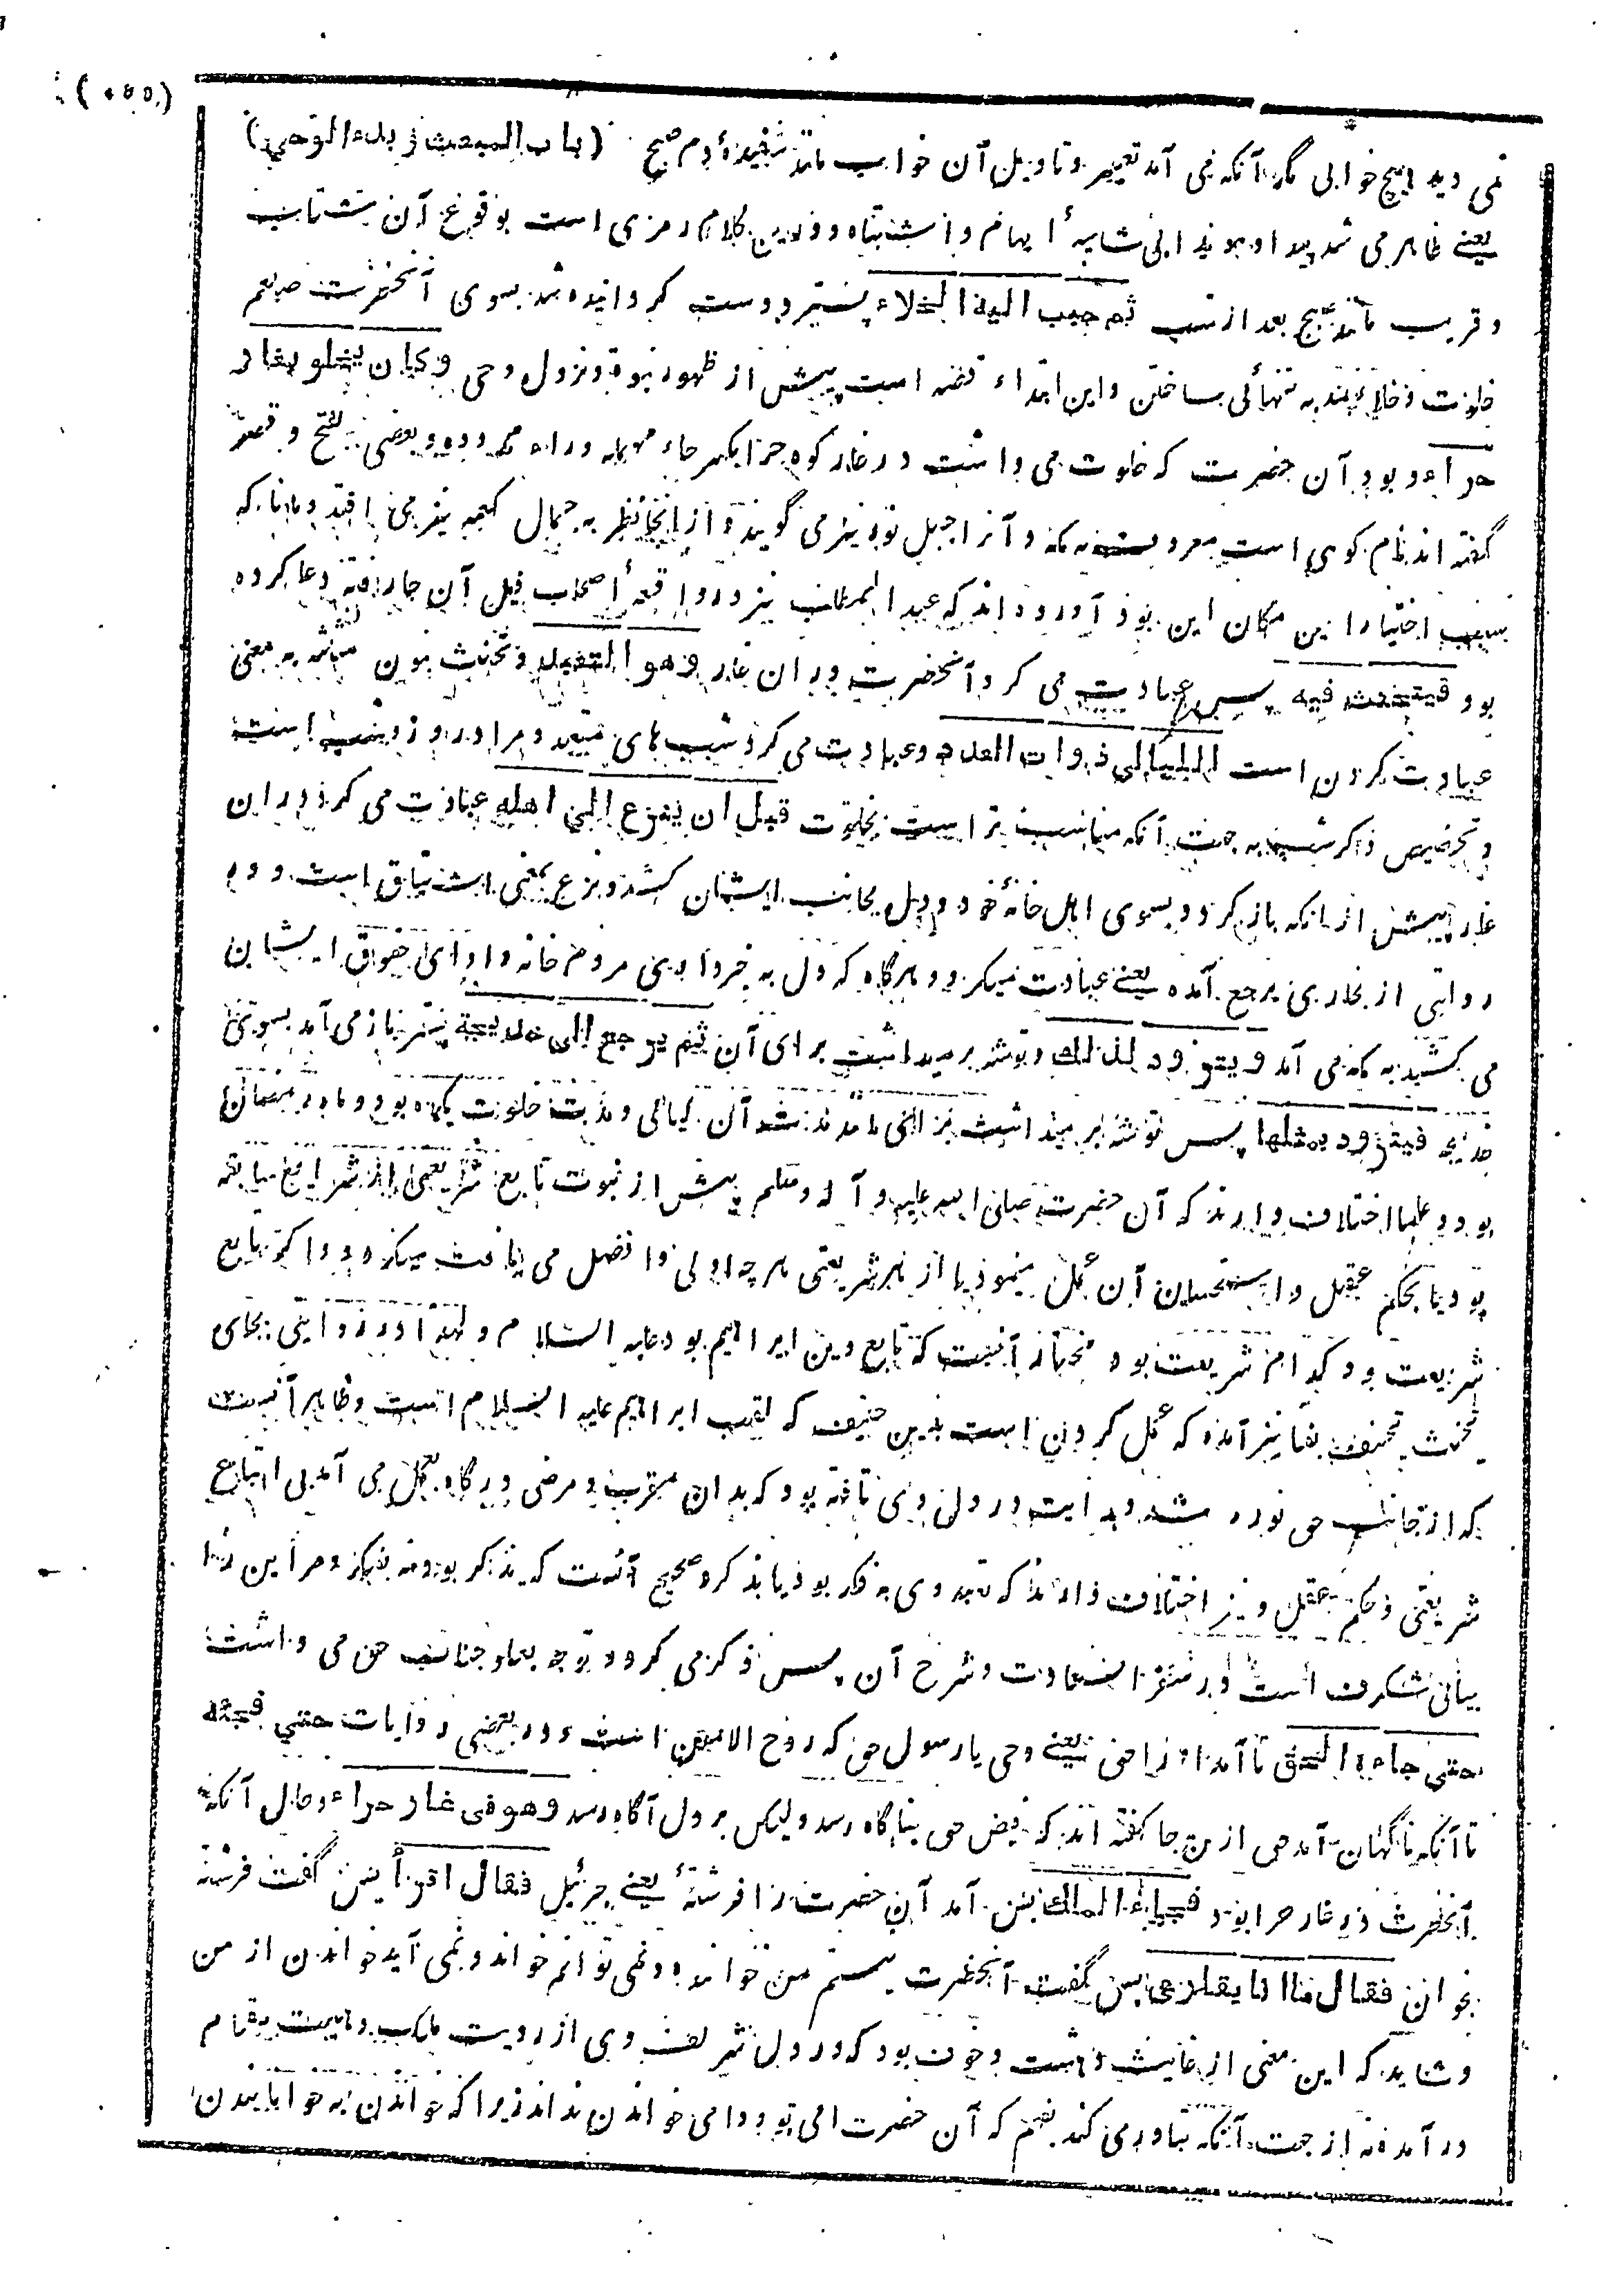 نمی دید هیچ خوابی مگر آنکه می آمد تعبیر و تاویل آن خواب مانند سفیدهٔ دم صبح (باب المبعث و بدء الوحی)
یعنے ظاهر می شد پیدا و هویدا بی شایبهٔ ایهام و اشتباه و درین کلام رمزی است بوقوع آن بشتاب
و قریب مانند صبح بعد از شب ثم حبب الیه الخلاء پستر دوست گردانیده شد بسوی آنحضرت صلعم
خلوت و خلاء بمد به تنهائی ساختن و این ابتداء قضه است پیش از ظهور نبوة و نزول وحی و کان یخلو بغار
حراء و بود آن حضرت که خلوت می داشت در غار کوه حرا بکسر حاء مهمله و راء ممدوده و بعضی بفتح و قصر
گفته اند نام کوهی است معروف به مکه و آنرا جبل نور نیز می گویند و از آنجا نظر به جمال کعبه نیز می افتد و مانا که
سبب اختیار این مکان این بود آورده اند که عبد المطلب نیز در واقعهٔ اصحاب فیل آن جا رفته دعا کرده
بود فیتحنث فیه پس عبادت می کرد آنحضرت در ان غار و هو التعبد و تحنث بنون مثلثه به معنی
عبادت کردن است اللیالی ذوات العدد و عبادت می کرد شبهای متعدد و مراد روز و شب است
و تخصیص ذکر شب به جهت آنکه مناسب تر است بخلوت قبل ان ینزع الی اهله عبادت می کرد در ان
غار پیش از انکه باز گردد بسوی اهل خانهٔ خود و دل بجانب ایشان کشد و نزع بمعنی اشتیاق است و در
روایتی از بخاری یرجع آمده یعنے عبادت میکرد و هرگاه که دل به خبرداری مردم خانه و ادای حقوق ایشان
می کشید به مکه می آمد و یتزود لذلك و توشه برمیداشت برای آن ثم یرجع الی خدیجة پستر باز می آمد بسوی
خدیجه فیتزود بمثلها پس توشه بر میداشت برای مانند آن لیالی و مدت خلوت یکماه بود و ماه رمضان
بود و علما اختلاف دارند که آن حضرت صلی الله علیه و آله وسلم پیش از نبوت تابع شریعتی از شرایع سابقه
بود یا بحکم عقل و استحسان آن عمل مینمود یا از هر شریعتی هر چه اولی و افضل می یافت میکرد و اگر تابع
شریعت بود کدام شریعت بود مختار آنست که تابع دین ابراهیم بود علیه السلام و لهذا در روایتی بجای
تحنث تحنف بفا نیز آمده که عمل کردن است بدین حنیف که لقب ابراهیم علیه السلام است و ظاهر آنست
که از جانب حق نور رشد و هدایت در دل وی تافته بود که بدان مقرب و مرضی درگاه بعمل می آمد بی اتباع
شریعتی و حکم عقل و نیز اختلاف دارند که تعبد وی به فکر بود یا بذکر و صحیح آنست که بذکر بود نه بفکر و مر این را
بیانی شگرف است در سفر السعادت و شرح آن پس ذکر می کرد و توجه بعلو جناب حق می داشت
حتی جاءه الحق تا آمد او را حق یعنے وحی یا رسول حق که روح الامین است و در بعضی روایات حتی فجئه
تا آنکه ناگهان آمد حق ازین جا گفته اند که فیض حق بناگاه رسد ولیکن بر دل آگاه رسد و هو فی غار حراء و حال آنکه
آنحضرت در غار حرا بود فجاءه الملك پس آمد آن حضرت را فرشتهٔ یعنے جبرئیل فقال اقرأ پس گفت فرشته
بخوان فقال ما انا بقارئ پس گفت آنحضرت نیستم من خواننده و نمی توانم خواند و نمی آید خواندن از من
و شاید که این معنی از غایت دهشت و خوف بود که در دل شریف وی از رویت ملك و هیبت مقام
در آمد نه از جهت آنکه تبادر می کند بفهم که آن حضرت امی بود و امی خواندن نداند زیرا که خواندن به خوانانیدن